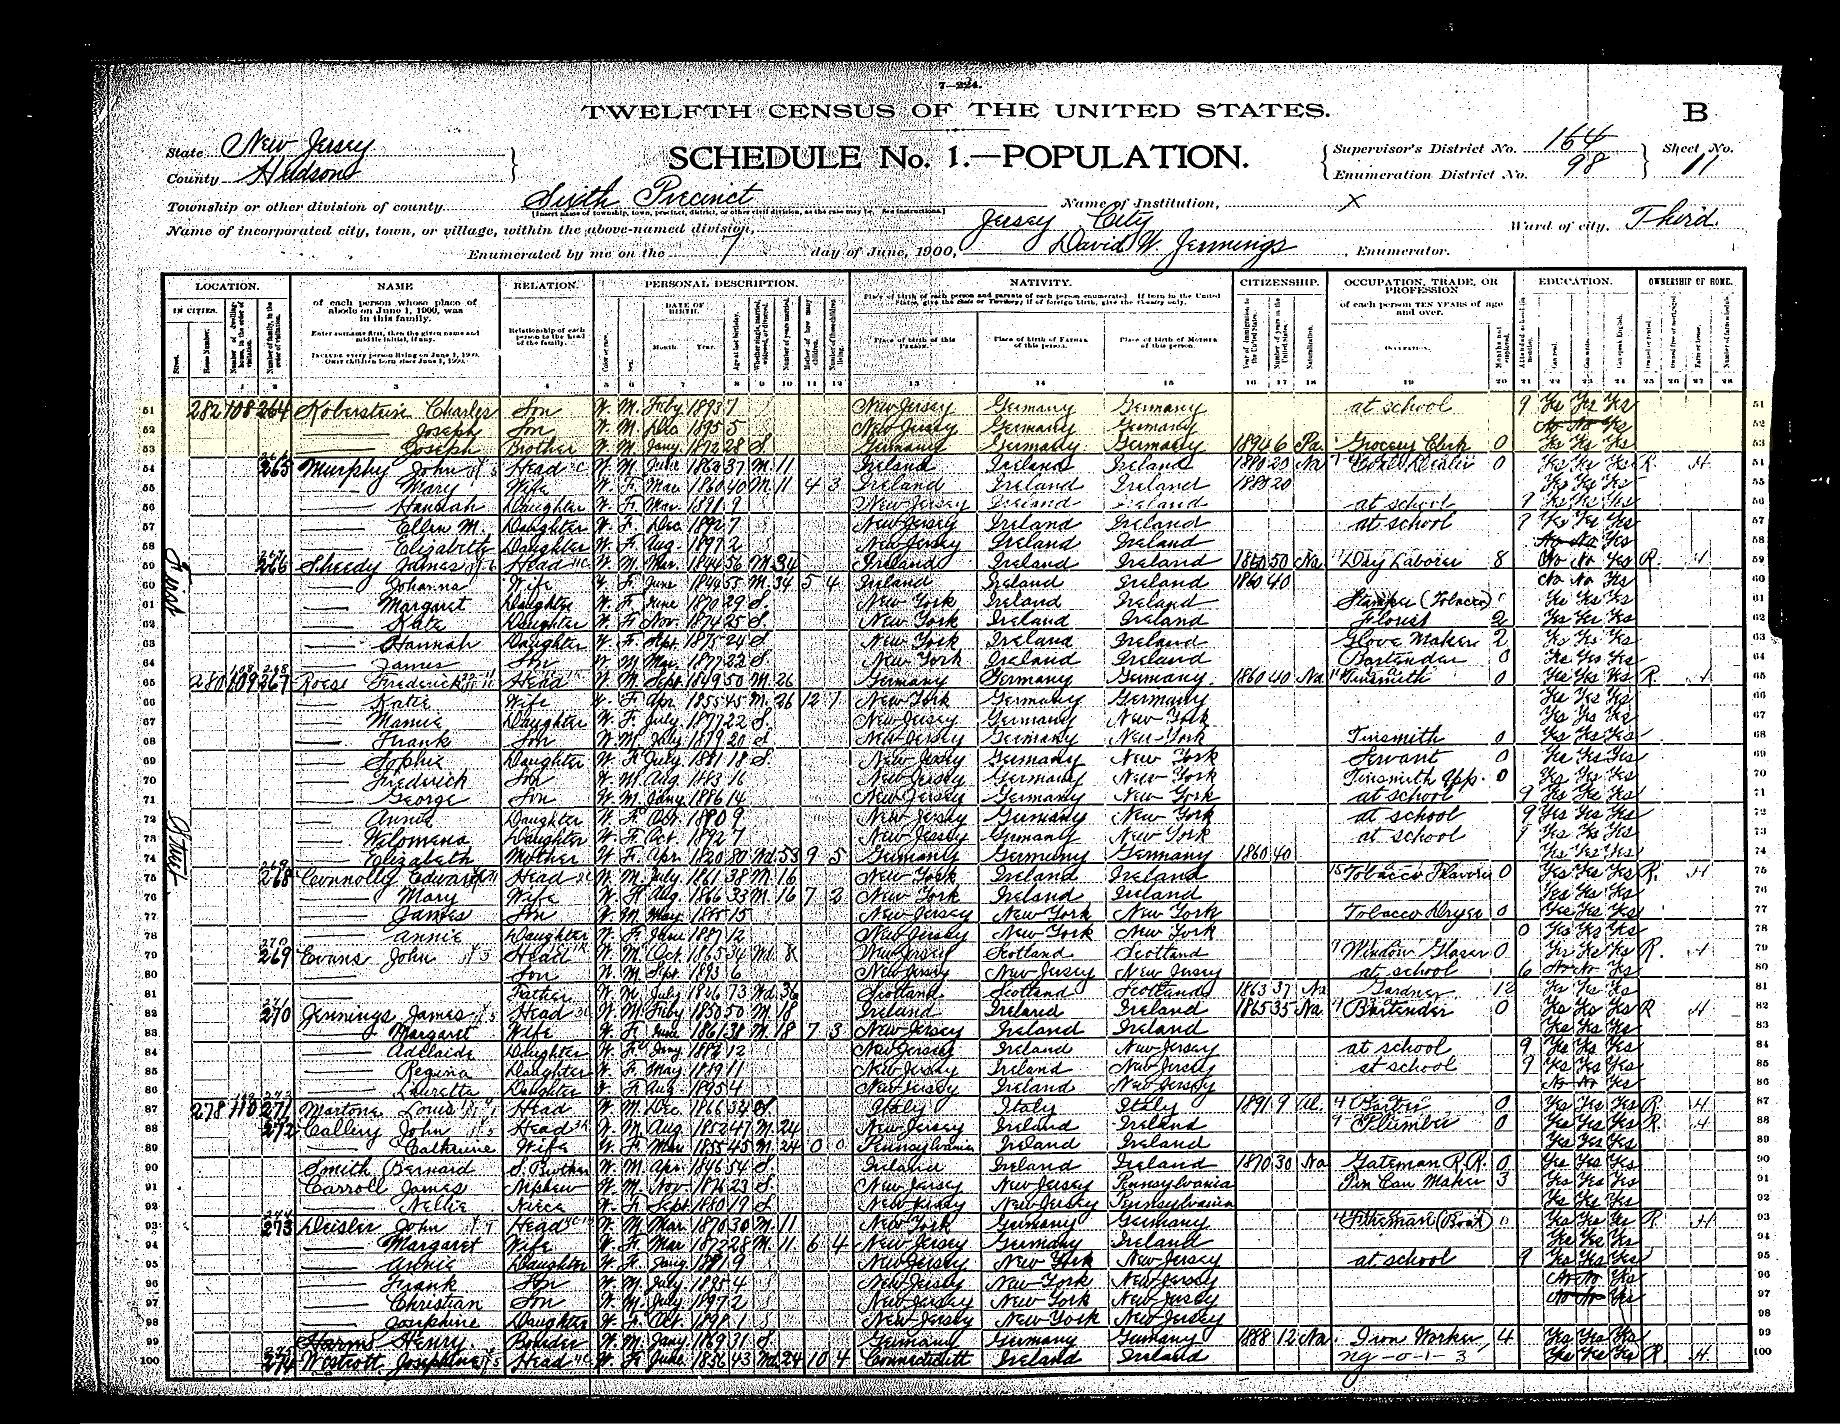 7—224.
TWELFTH CENSUS OF THE UNITED STATES.
B
State New Jersey
County Hudson
SCHEDULE No. 1.—POPULATION.
Supervisor's District No. 164
Enumeration District No. 98
Sheet No. 11
Township or other division of county Sixth Precinct
Name of Institution, X
Name of incorporated city, town, or village, within the above-named division, Jersey City
Ward of city, Third
Enumerated by me on the 7 day of June, 1900, David W. Jennings, Enumerator.
LOCATION. NAME RELATION. PERSONAL DESCRIPTION. NATIVITY. CITIZENSHIP. OCCUPATION, TRADE, OR PROFESSION EDUCATION. OWNERSHIP OF HOME.
IN CITIES. of each person whose place of abode on June 1, 1900, was in this family. Relationship of each person to the head of the family. DATE OF BIRTH. of each person TEN YEARS of age and over.
Month. Year. Place of birth of this PERSON. Place of birth of FATHER of this person. Place of birth of MOTHER of this person. OCCUPATION.
51 282 108 264 Koberstein Charles Son W M Feby 1893 7 New Jersey Germany Germany at school 9 Yes Yes Yes 51
52 Joseph Son W M Dec 1895 5 New Jersey Germany Germany No No Yes 52
53 Joseph Brother W M Jany 1872 28 S Germany Germany Germany 1894 6 Pa Grocery Clerk 0 Yes Yes Yes 53
54 265 Murphy John Head W M June 37 M 11 Ireland Ireland Ireland 20 Na 0 Yes Yes Yes R H 54
55 Mary Wife W F Mar 1860 40 M 11 4 3 Ireland Ireland Ireland 1880 20 Yes Yes Yes 55
56 Hannah Daughter W F Mar 1891 9 New Jersey Ireland Ireland at school 9 Yes Yes Yes 56
57 Ellen M. Daughter W F Dec 1892 7 New Jersey Ireland Ireland at school Yes Yes Yes 57
58 Elizabeth Daughter W F Aug 1897 2 New Jersey Ireland Ireland No No Yes 58
59 266 Sheedy James Head W M Mar 1844 56 M 34 Ireland Ireland Ireland 50 Na Day Laborer 8 No No Yes R H 59
60 Johanna Wife W F June 55 M 34 5 4 Ireland Ireland Ireland 1860 40 No No Yes 60
61 Margaret Daughter W F June 1870 29 S New York Ireland Ireland (Tobacco) Yes Yes Yes 61
62 Kate Daughter W F Nov 1874 25 S New York Ireland Ireland Florist 2 Yes Yes Yes 62
63 Hannah Daughter W F Sept 1875 24 S New York Ireland Ireland Glove Maker 2 Yes Yes Yes 63
64 James Son W M Mar 1877 22 S New York Ireland Ireland Bartender 0 Yes Yes Yes 64
65 280 109 267 Roese Frederick Head W M Sept 1849 50 M 26 Germany Germany Germany 1860 40 Na Tinsmith 0 Yes Yes Yes R H 65
66 Katie Wife W F Apr 1855 45 M 26 12 7 New York Germany Germany Yes Yes Yes 66
67 Mamie Daughter W F July 1877 22 S New Jersey Germany New York Yes Yes Yes 67
68 Frank Son W M July 1879 20 S New Jersey Germany New York Tinsmith 0 Yes Yes Yes 68
69 Sophie Daughter W F July 1881 18 S New Jersey Germany New York Servant 0 Yes Yes Yes 69
70 Frederick Son W M Aug 1883 16 New Jersey Germany New York Tinsmith App. 0 Yes Yes Yes 70
71 George Son W M Jany 1886 14 New Jersey Germany New York at school 9 Yes Yes Yes 71
72 Annie Daughter W F 1890 9 New Jersey Germany New York at school 9 Yes Yes Yes 72
73 Daughter W F Oct 1892 7 New Jersey Germany New York at school 9 Yes Yes Yes 73
74 Elizabeth Mother W F Apr 1820 80 Wd 53 9 5 Germany Germany Germany 1860 40 Yes Yes Yes 74
75 268 Connolly Edward Head W M July 1861 38 M 16 New York Ireland Ireland Tobacco 0 Yes Yes Yes R H 75
76 Mary Wife W F Aug 1866 33 M 16 7 2 New York Ireland Ireland Yes Yes Yes 76
77 James Son W M May 1885 15 New Jersey New York New York Tobacco Dryer 0 Yes Yes Yes 77
78 Annie Daughter W F June 1887 12 New Jersey New York New York 0 Yes Yes Yes 78
79 269 Evans John Head W M Oct 1865 34 Wd 8 New Jersey Scotland Scotland Window Glaser 0 Yes Yes Yes R H 79
80 Son W M Sept 1893 6 New Jersey New Jersey New Jersey at school 6 No No Yes 80
81 Father W M July 1826 73 Wd 36 Scotland Scotland Scotland 1863 37 Na Gardner 12 Yes Yes Yes 81
82 270 Jennings James Head W M Feby 1850 50 M 18 Ireland Ireland Ireland 1865 35 Na Bartender 0 Yes Yes Yes R H 82
83 Margaret Wife W F June 1861 38 M 18 7 3 New Jersey Ireland Ireland Yes Yes Yes 83
84 Adelaide Daughter W F Jany 12 New Jersey Ireland New Jersey at school 9 Yes Yes Yes 84
85 Regina Daughter W F May 1889 11 New Jersey Ireland New Jersey at school 9 Yes Yes Yes 85
86 Lauretta Daughter W F Aug 1895 4 New Jersey Ireland New Jersey No No Yes 86
87 278 110 271 Martone Louis Head W M Dec 1866 34 S Italy Italy Italy 1891 9 Al 0 Yes Yes Yes R H 87
88 272 Callery John Head W M Aug 1852 47 M 24 New Jersey Ireland Ireland Plumber 0 Yes Yes Yes R H 88
89 Catherine Wife W F Mar 1855 45 M 24 0 0 Pennsylvania Ireland Ireland Yes Yes Yes 89
90 Smith Bernard S. Brother W M Apr 1846 54 S Ireland Ireland Ireland 1870 30 Na Gateman R.R. 0 Yes Yes Yes 90
91 Carroll James Nephew W M Nov 1876 23 S New Jersey New Jersey Pennsylvania Can Maker 3 Yes Yes Yes 91
92 Nellie Niece W F Sept 1880 19 S New Jersey New Jersey Pennsylvania Yes Yes Yes 92
93 273 Deisler John Head W M Mar 1870 30 M 11 New York Germany Germany Fireman (Boat) 0 Yes Yes Yes R H 93
94 Margaret Wife W F Mar 1872 28 M 11 6 4 New Jersey Germany Ireland Yes Yes Yes 94
95 Annie Daughter W F Jany 1891 9 New Jersey New York New Jersey at school 9 Yes Yes Yes 95
96 Frank Son W M July 1895 4 New Jersey New York New Jersey No No Yes 96
97 Christian Son W M July 1897 2 New Jersey New York New Jersey No No Yes 97
98 Josephine Daughter W F Oct 1898 1 New Jersey New York New Jersey 98
99 Harms Henry Boarder W M Jany 1869 31 S Germany Germany Germany 1888 12 Na Iron Worker 4 Yes Yes Yes 99
100 274 Westcott Josephine Head W F June 1856 43 Wd 24 10 4 Connecticut Ireland Ireland ng-0-1-3 Yes Yes Yes R H 100
First Street